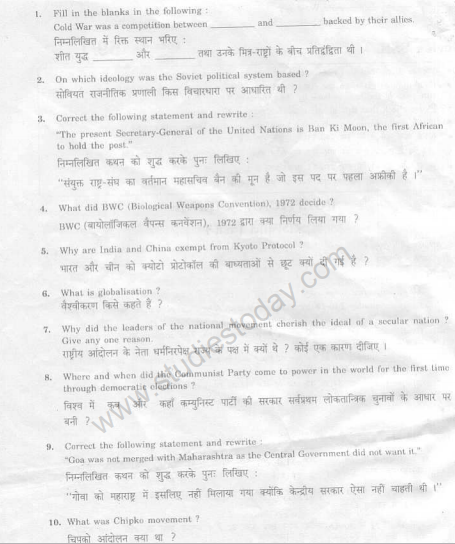 1. Fill in the blanks in the following :
Cold War was a competition between ________ and ________ backed by their allies.
निम्नलिखित में रिक्त स्थान भरिए :
शीत युद्ध ________ और ________ तथा उनके मित्र-राष्ट्रों के बीच प्रतिद्वंद्विता थी ।
2. On which ideology was the Soviet political system based ?
सोवियत राजनीतिक प्रणाली किस विचारधारा पर आधारित थी ?
3. Correct the following statement and rewrite :
"The present Secretary-General of the United Nations is Ban Ki Moon, the first African
to hold the post."
निम्नलिखित कथन को शुद्ध करके पुनः लिखिए :
"संयुक्त राष्ट्र-संघ का वर्तमान महासचिव बैन की मून है जो इस पद पर पहला अफ्रीकी है ।"
4. What did BWC (Biological Weapons Convention), 1972 decide ?
BWC (बायोलॉजिकल वैपन्स कनवेंशन), 1972 द्वारा क्या निर्णय लिया गया ?
5. Why are India and China exempt from Kyoto Protocol ?
भारत और चीन को क्योटो प्रोटोकॉल की बाध्यताओं से छूट क्यों दी गई है ?
6. What is globalisation ?
वैश्वीकरण किसे कहते हैं ?
7. Why did the leaders of the national movement cherish the ideal of a secular nation ?
Give any one reason.
राष्ट्रीय आंदोलन के नेता धर्मनिरपेक्ष राज्य के पक्ष में क्यों थे ? कोई एक कारण दीजिए ।
8. Where and when did the Communist Party come to power in the world for the first time
through democratic elections ?
विश्व में कब और कहाँ कम्युनिस्ट पार्टी की सरकार सर्वप्रथम लोकतान्त्रिक चुनावों के आधार पर
बनी ?
9. Correct the following statement and rewrite :
"Goa was not merged with Maharashtra as the Central Government did not want it."
निम्नलिखित कथन को शुद्ध करके पुनः लिखिए :
"गोवा को महाराष्ट्र में इसलिए नहीं मिलाया गया क्योंकि केन्द्रीय सरकार ऐसा नहीं चाहती थी ।"
10. What was Chipko movement ?
चिपको आंदोलन क्या था ?
www.studiestoday.com